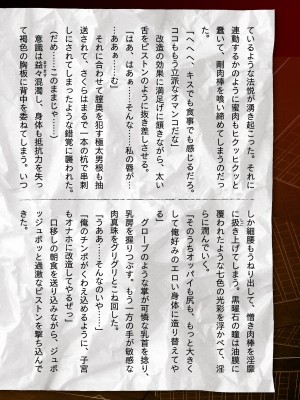 ているような法悦が湧き起こった。それに
連動するかのように蜜肉もヒクッヒクッと
蠢いて、剛肉棒を喰い締めてしまうのだっ
た。
「へへへ、キスでも食事でも感じるだろ。
ココももう立派なオマンコだな」
改造の効果に満足げに頷きながら、太い
舌をピストンのように抜き差しさせる。
「はぁ、はぁぁ……そんな……私の唇が…
…ああぁ……む」
それに合わせて膣奥を犯す極太男根も抽
送されて、さくらはまるで一本の杭で串刺
しにされてしまったような錯覚に襲われた。
(だめ……このままじゃ……)
意識は益々混濁し、身体も抵抗力を失っ
て褐色の胸板に背中を委ねてしまう。いつ
しか細腰もうねり出して、憎き肉棒を淫靡
に扱き上げてしまう。黒曜石の瞳は油膜に
覆われたような七色の光彩を浮かべて、淫
らに潤んでいく。
「そのうちオッパイも尻も、もっと大きく
して俺好みのエロい身体に造り替えてや
る」
グローブのような掌が可憐な乳首を捻り、
乳房を握りつぶす。もう一方の手が敏感な
肉真珠をグリグリとこね回した。
「うああ…そんなのいや……」
「俺のチンポがくわえ込めるように、子宮
もオナホに改造してやるぜっ」
口移しの朝食を送り込みながら、ジュボ
ッジュボッと過激なピストンを撃ち込んで
きた。